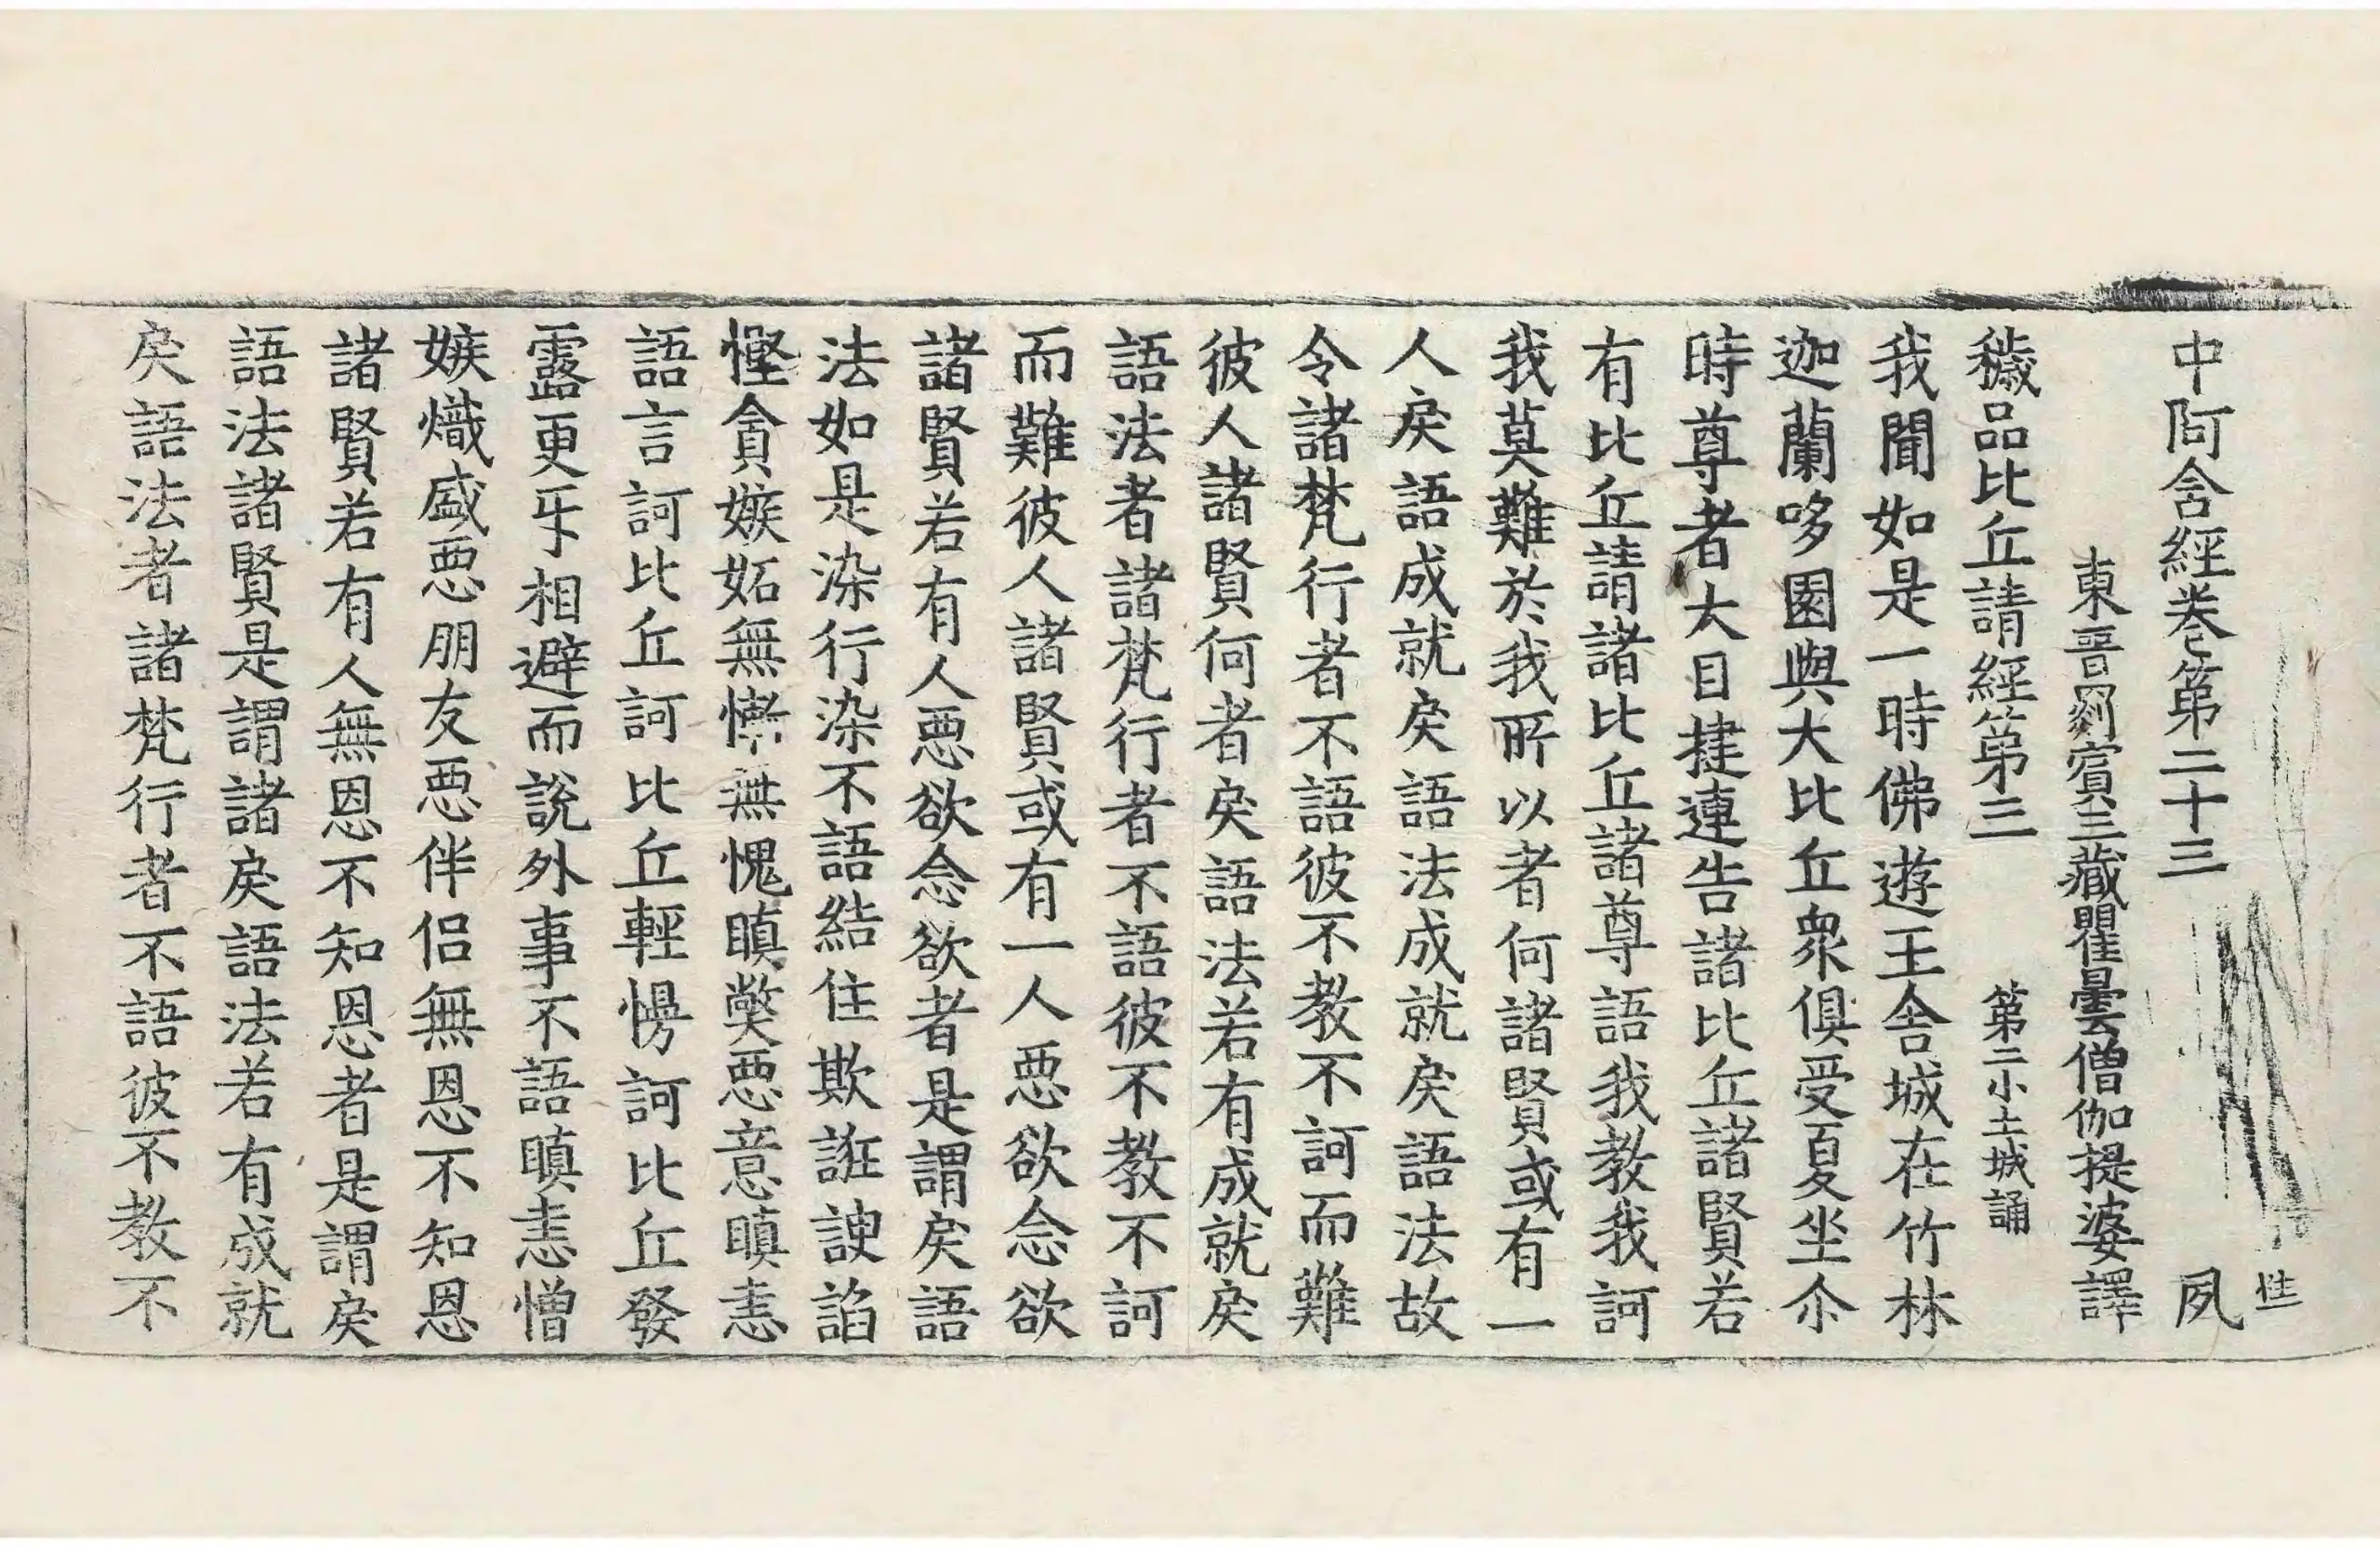 中阿含經卷第二十三　夙
東晉罽賓三藏瞿曇僧伽提婆譯
穢品比丘請經第三　第二小土城誦
我聞如是一時佛遊王舍城在竹林
迦蘭哆園與大比丘衆俱受夏坐尒
時尊者大目揵連告諸比丘諸賢若
有比丘請諸比丘諸尊語我教我訶
我莫難於我所以者何諸賢或有一
人戾語成就戾語法成就戾語法故
令諸梵行者不語彼不教不訶而難
彼人諸賢何者戾語法若有成就戾
語法者諸梵行者不語彼不教不訶
而難彼人諸賢或有一人惡欲念欲
諸賢若有人惡欲念欲者是謂戾語
法如是染行染不語結住欺誑諛諂
慳貪嫉妬無慚無愧瞋弊惡意瞋恚
語言訶比丘訶比丘輕慢訶比丘發
露更互相避而說外事不語瞋恚憎
嫉熾盛惡朋友惡伴侶無恩不知恩
諸賢若有人無恩不知恩者是謂戾
語法諸賢是謂諸戾語法若有成就
戾語法者諸梵行者不語彼不教不